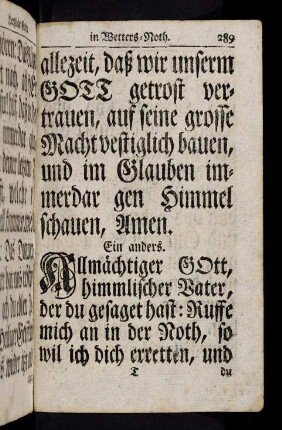 in Wetters-Noth. 289
allezeit, daß wir unserm
GOTT getrost ver-
trauen, auf seine grosse
Macht vestiglich bauen,
und im Glauben im-
merdar gen Himmel
schauen, Amen.
Ein anders.
Allmächtiger GOtt,
himmlischer Vater,
der du gesaget hast: Ruffe
mich an in der Noth, so
wil ich dich erretten, und
T du